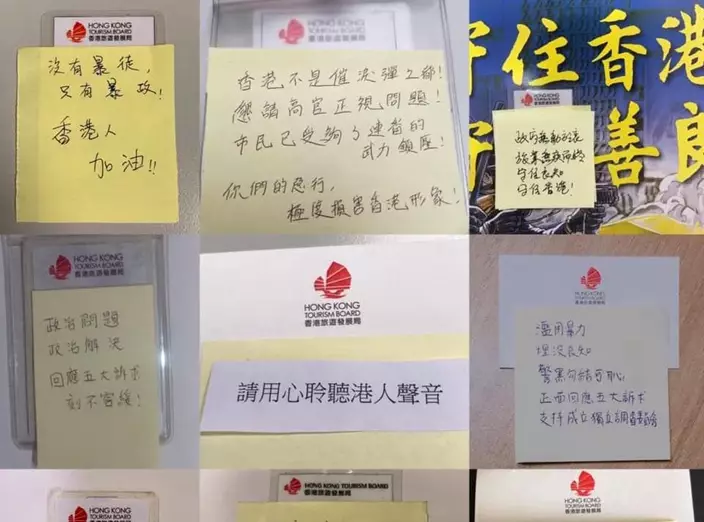 HONG KONG
TOURISM BOARD
香港旅遊發展局
沒有暴徒，
只有暴政！
香港人
加油!!
HONG KONG
TOURISM BOARD
香港旅遊發展局
香港不是催淚彈之都！
懇請高官正視問題！
市民已受夠了連番的
武力鎮壓！
你們的惡行，
極度損害香港形象！
守住香港
守 善良
HONG KONG
TOURISM BOARD
香港旅遊發展局
守住良知
守住香港！
HONG KONG
TOURISM BOARD
香港旅遊發展局
政治問題
政治解決
回應五大訴求
刻不容緩！
HONG KONG
TOURISM BOARD
香港旅遊發展局
請用心聆聽港人聲音
HONG KONG
TOURISM BOARD
香港旅遊發展局
濫用暴力
埋沒良知
警黑勾結可恥
正面回應五大訴求
支持成立獨立調查委員會
HONG KONG
TOURISM BOARD
香港旅遊發展局
HONG KONG TOURISM BOARD
香港旅遊發展局
HONG KONG
TOURISM BOARD
香港旅遊發展局